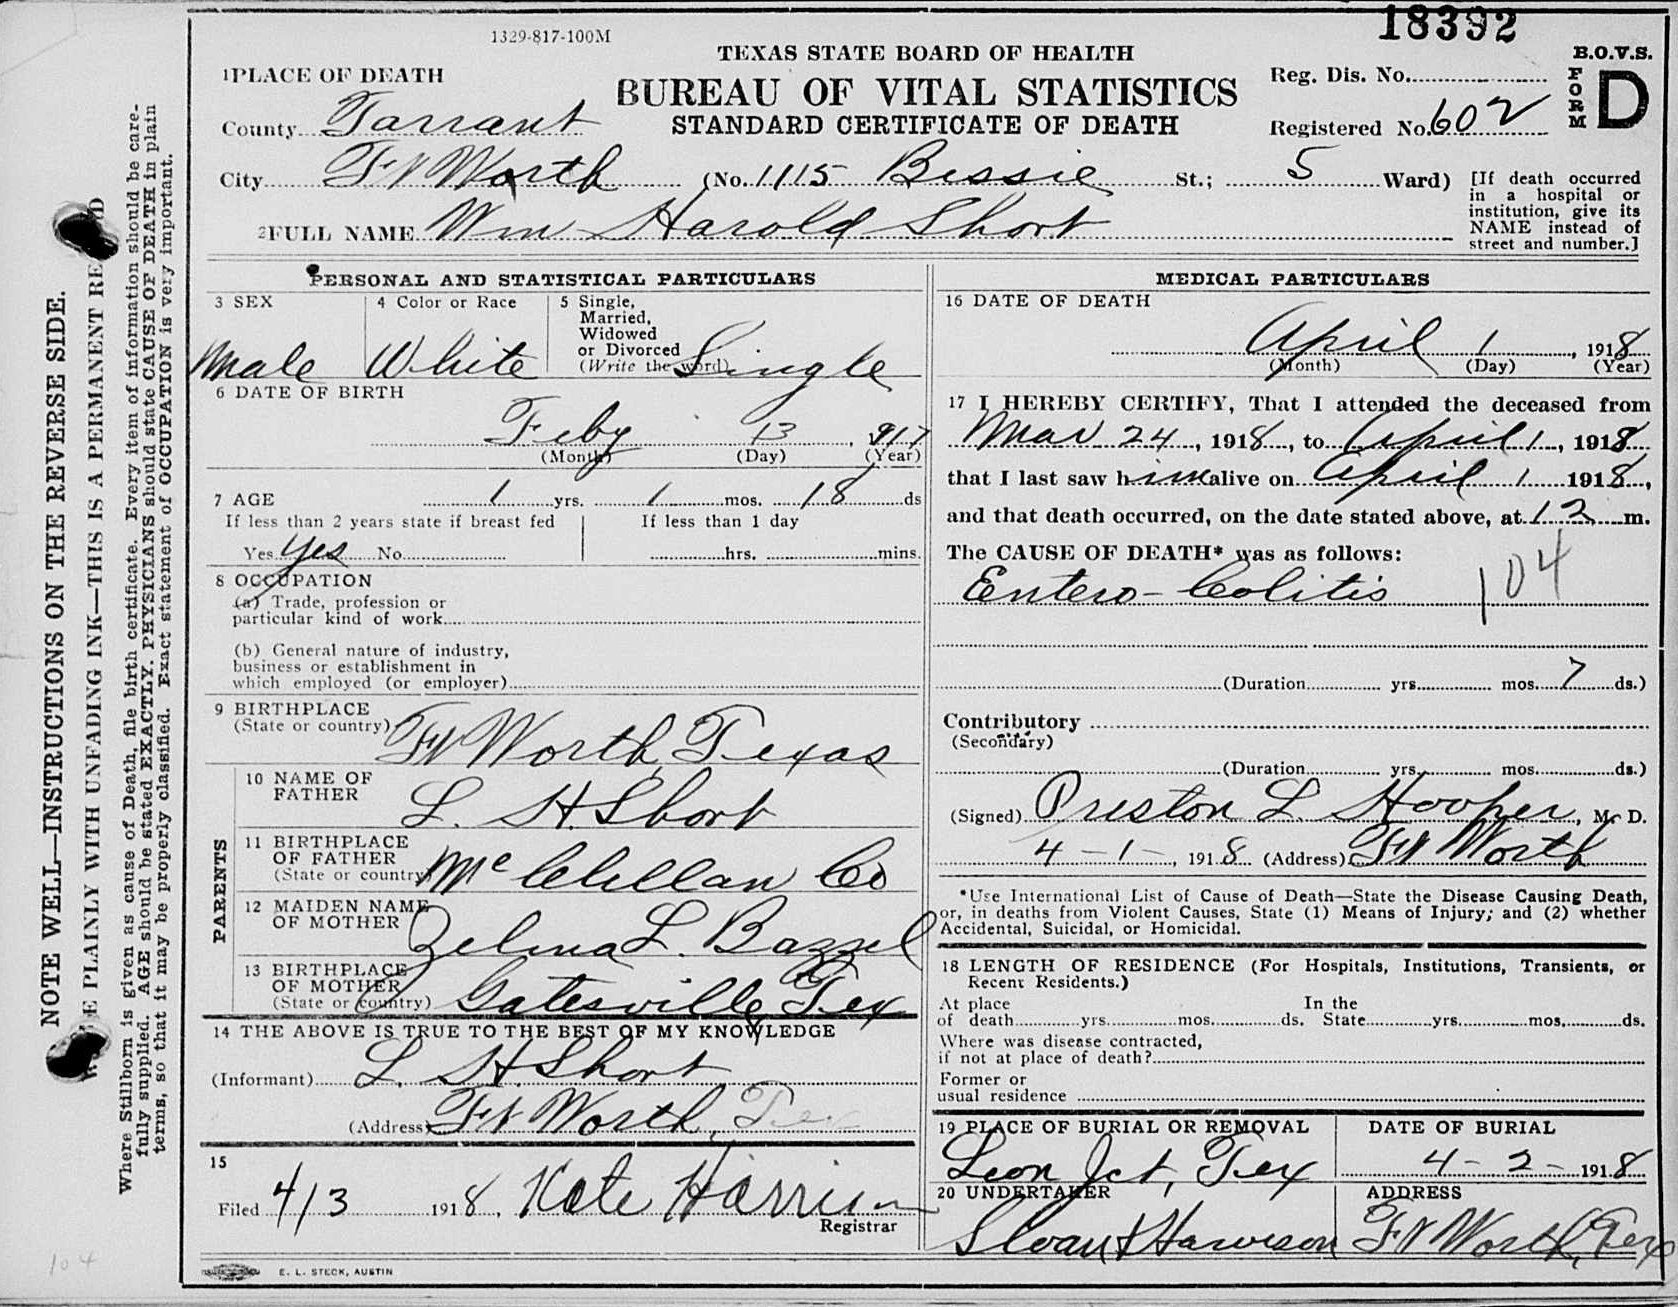 18392
1329-817-100M
TEXAS STATE BOARD OF HEALTH
BUREAU OF VITAL STATISTICS
STANDARD CERTIFICATE OF DEATH
B.O.V.S.
FORM D
Reg. Dis. No.
Registered No. 602
1 PLACE OF DEATH
County Tarrant
City Ft Worth (No. 1115 Bessie St.; 5 Ward)
[If death occurred
in a hospital or
institution, give its
NAME instead of
street and number.]
2 FULL NAME Wm Harold Short
PERSONAL AND STATISTICAL PARTICULARS
3 SEX
Male
4 Color or Race
White
5 Single,
Married,
Widowed
or Divorced
(Write the word) Single
6 DATE OF BIRTH
Feby 13, 917
(Month) (Day) (Year)
7 AGE 1 yrs. 1 mos. 18 ds
If less than 2 years state if breast fed
Yes yes No
If less than 1 day
hrs. mins.
8 OCCUPATION
(a) Trade, profession or
particular kind of work
(b) General nature of industry,
business or establishment in
which employed (or employer)
9 BIRTHPLACE
(State or country) Ft Worth, Texas
PARENTS
10 NAME OF
FATHER L. H. Short
11 BIRTHPLACE
OF FATHER
(State or country) McClellan Co
12 MAIDEN NAME
OF MOTHER Zelma L. Bazzel
13 BIRTHPLACE
OF MOTHER
(State or country) Gatesville, Tex
14 THE ABOVE IS TRUE TO THE BEST OF MY KNOWLEDGE
(Informant) L. H. Short
(Address) Ft Worth, Tex
15
Filed 4/3 1918, Kate Harrison
Registrar
E. L. STECK, AUSTIN
MEDICAL PARTICULARS
16 DATE OF DEATH
April 1, 1918
(Month) (Day) (Year)
17 I HEREBY CERTIFY, That I attended the deceased from
Mar 24, 1918, to April 1, 1918
that I last saw him alive on April 1 1918,
and that death occurred, on the date stated above, at 12 m.
The CAUSE OF DEATH* was as follows:
Entero-Colitis 104
(Duration yrs. mos. 7 ds.)
Contributory
(Secondary)
(Duration yrs. mos. ds.)
(Signed) Preston L. Hooper, M. D.
4-1-, 1918 (Address) Ft Worth
*Use International List of Cause of Death—State the Disease Causing Death,
or, in deaths from Violent Causes, State (1) Means of Injury; and (2) whether
Accidental, Suicidal, or Homicidal.
18 LENGTH OF RESIDENCE (For Hospitals, Institutions, Transients, or
Recent Residents.)
At place
of death yrs. mos. ds.
In the
State yrs. mos. ds.
Where was disease contracted,
if not at place of death?
Former or
usual residence
19 PLACE OF BURIAL OR REMOVAL
Leon Jct, Tex
DATE OF BURIAL
4-2-1918
20 UNDERTAKER
ADDRESS
Ft Worth, Tex
NOTE WELL—INSTRUCTIONS ON THE REVERSE SIDE.
PLAINLY WITH UNFADING INK—THIS IS A PERMANENT
Where Stillborn is given as cause of Death, file birth certificate. Every item of information should be care-
fully supplied. AGE should be stated EXACTLY. PHYSICIANS should state CAUSE OF DEATH in plain
terms, so that it may be properly classified. Exact statement of OCCUPATION is very important.
104